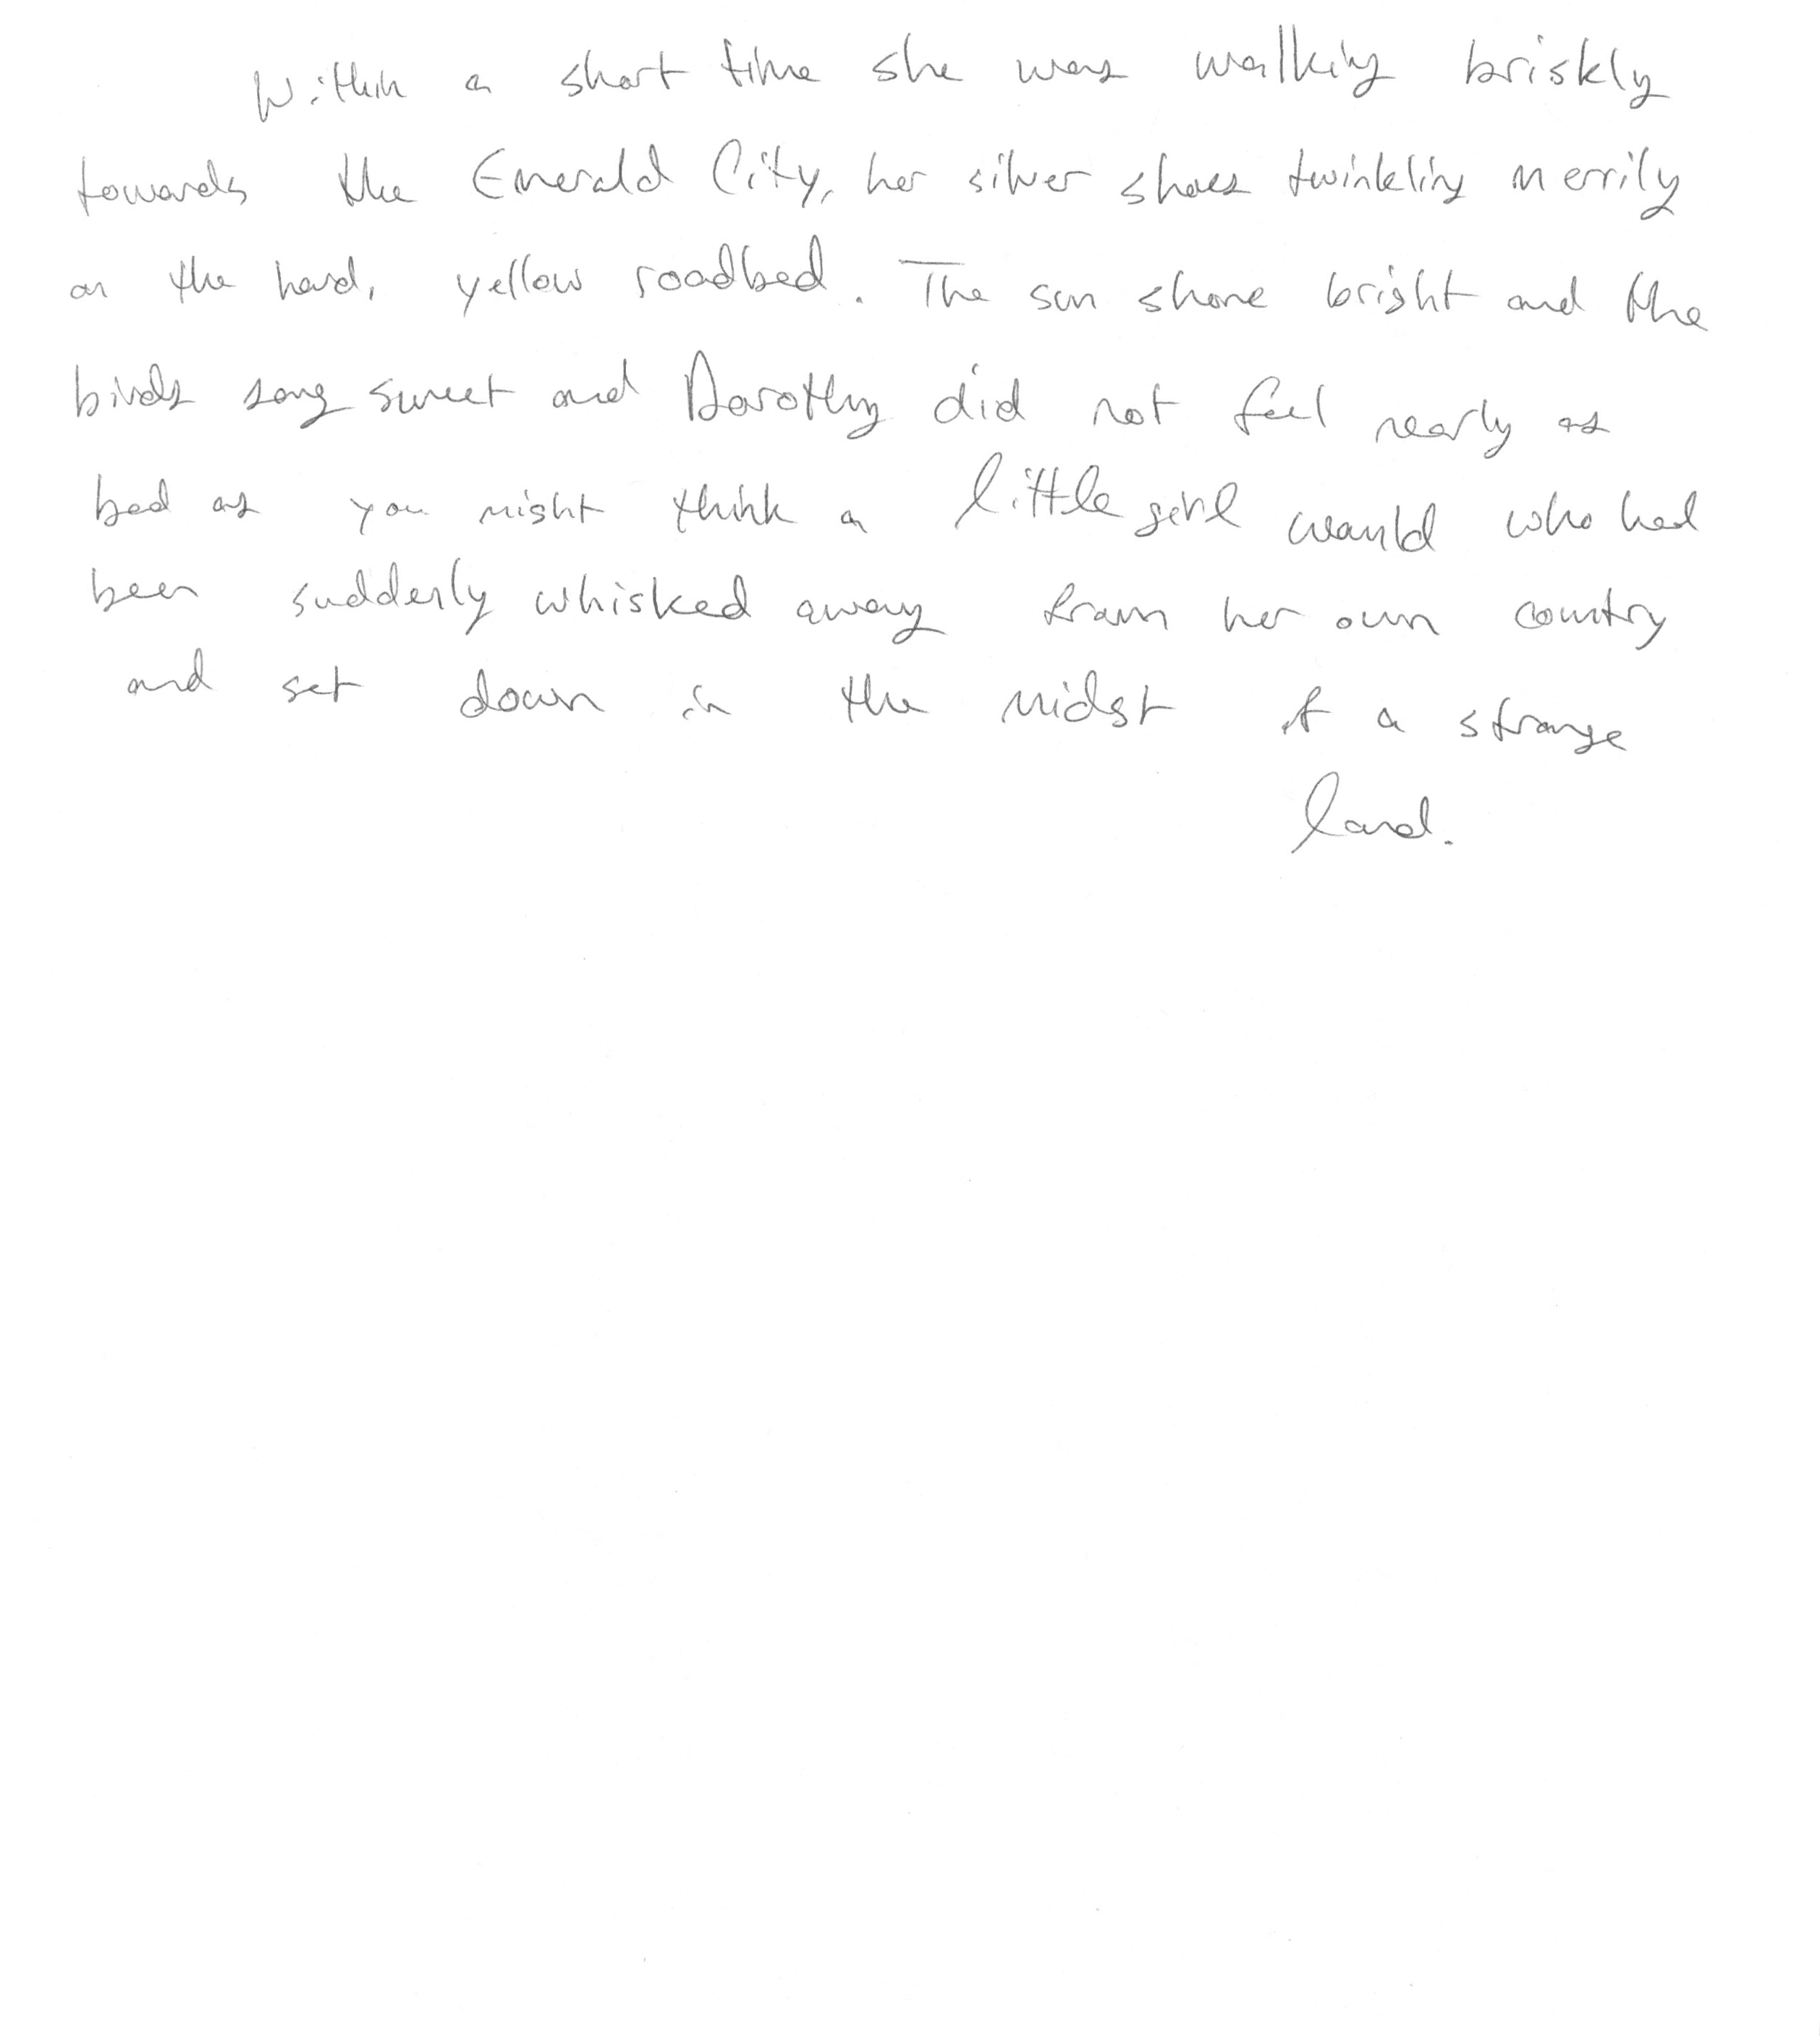 Within a short time she was walking briskly
towards the Emerald City, her silver shoes twinkling merrily
on the hard, yellow roadbed. The sun shone bright and the
birds sang sweet and Dorothy did not feel nearly as
bad as you might think a little girl would who had
been suddenly whisked away from her own country
and set down in the midst of a strange
land.